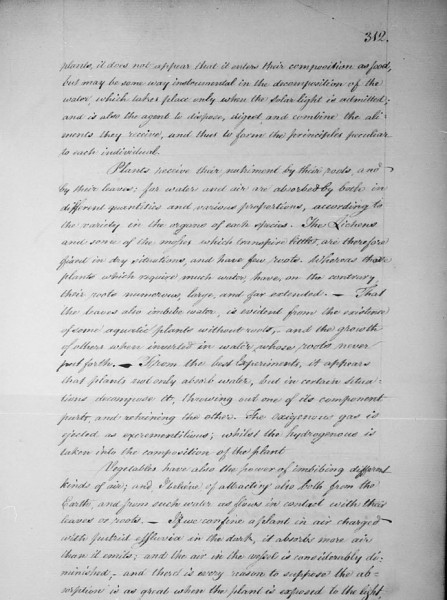 312.
plants, it does not appear that it enters their composition as food,
but may be some way instrumental in the decomposition of the
water, which takes place only when the solar light is admitted;
and is also the agent to dispose, digest, and combine the ali-
ments they receive, and thus to form the principles peculiar
to each individual.
Plants receive their nutriment by their roots, and
by their leaves: for water and air are absorbed by both in
different quantities and various proportions, according to
the variety in the organs of each species. The Lichens
and some of the mosses which transpire little, are therefore
fixed in dry situations, and have few roots. Whereas those
plants which require much water, have, on the contrary
their roots numerous, large, and far extended. — That
the leaves also imbibe water, is evident from the existence
of some aquatic plants without roots, and the growth
of others when inverted in water, whose roots never
put forth. — From the best Experiments, it appears
that plants not only absorb water, but in certain situa-
tions decompose it, throwing out one of its component
parts, and retaining the other. The oxigenous gas is
ejected as excrementitious; whilst the hydrogenous is
taken into the composition of the plant
Vegetables have also the power of imbibing different
kinds of air; and I believe of attracting also both from the
Earth, and from such water as flows in contact with their
leaves or roots. — If we confine a plant in air charged
with putrid effluvia in the dark, it absorbs more air
than it emits; and the air in the vessel is considerably di-
minished; and there is every reason to suppose the ab-
sorption is as great when the plant is exposed to the light,